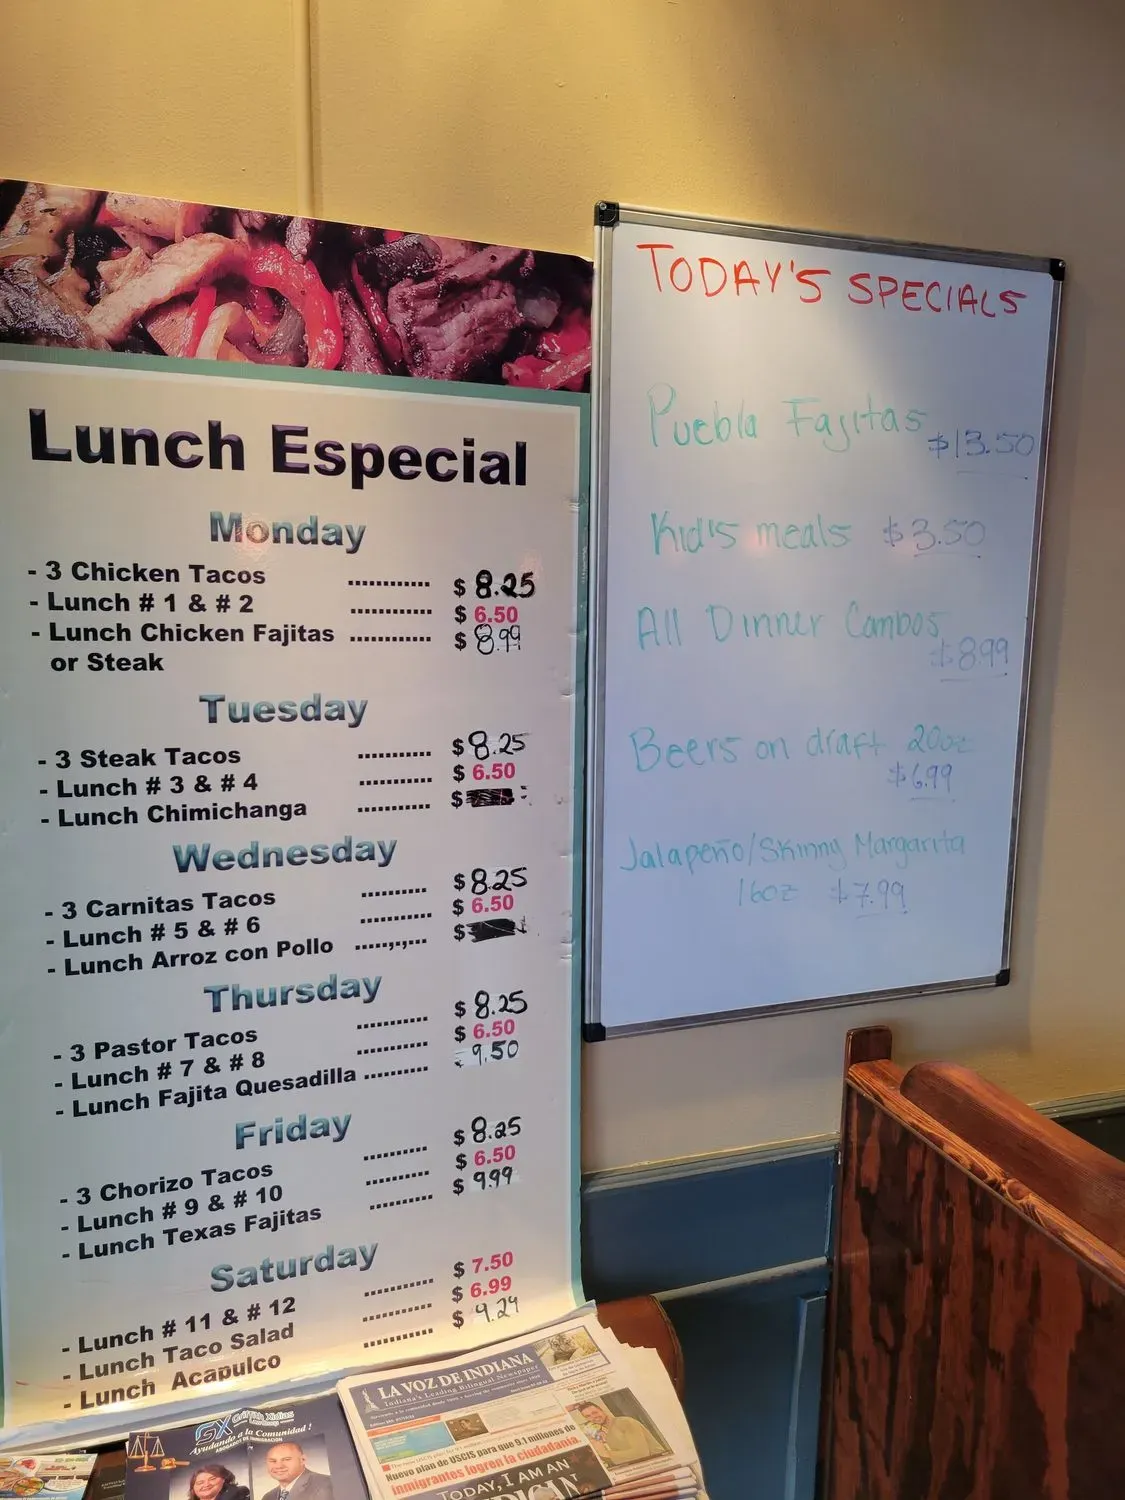 Lunch Especial
Monday
- 3 Chicken Tacos ............ $ 8.25
- Lunch # 1 & # 2 ............ $ 6.50
- Lunch Chicken Fajitas ............ $ 8.99
or Steak
Tuesday
- 3 Steak Tacos ........... $ 8.25
- Lunch # 3 & # 4 ........... $ 6.50
- Lunch Chimichanga ........... $
Wednesday
- 3 Carnitas Tacos .......... $ 8.25
- Lunch # 5 & # 6 .......... $ 6.50
- Lunch Arroz con Pollo .......... $
Thursday
- 3 Pastor Tacos .......... $ 8.25
- Lunch # 7 & # 8 .......... $ 6.50
- Lunch Fajita Quesadilla .......... 9.50
Friday
- 3 Chorizo Tacos .......... $ 8.25
- Lunch # 9 & # 10 .......... $ 6.50
- Lunch Texas Fajitas .......... $ 9.99
Saturday
- Lunch # 11 & # 12 ........... $ 7.50
- Lunch Taco Salad ........... $ 6.99
- Lunch Acapulco ........... $ 9.29
TODAY'S SPECIALS
Puebla Fajitas
$13.50
Kid's meals $3.50
All Dinner Combos
$8.99
Beers on draft 20oz
$6.99
Jalapeño/Skinny Margarita
16oz $7.99
GX Griffith Xidias
Law Group
Ayudando a la Comunidad!
ABOGADOS DE INMIGRACION
LA VOZ DE INDIANA
Indiana's Leading Bilingual Newspaper
Nuevo plan de USCIS para que 9.1 millones de
inmigrantes logren la ciudadanía.
TODAY, I AM AN